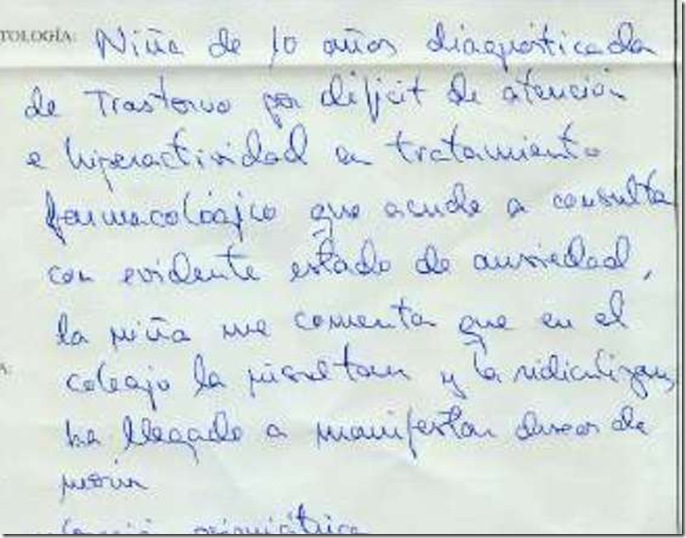 TOLOGÍA: Niña de 10 años diagnosticada
de Trastorno por déficit de atención
e hiperactividad en tratamiento
farmacológico que acude a consulta
con evidente estado de ansiedad,
la niña me comenta que en el
A:
colegio la insultan y la ridiculizan,
ha llegado a manifestar deseos de
morir
psiquiátrica